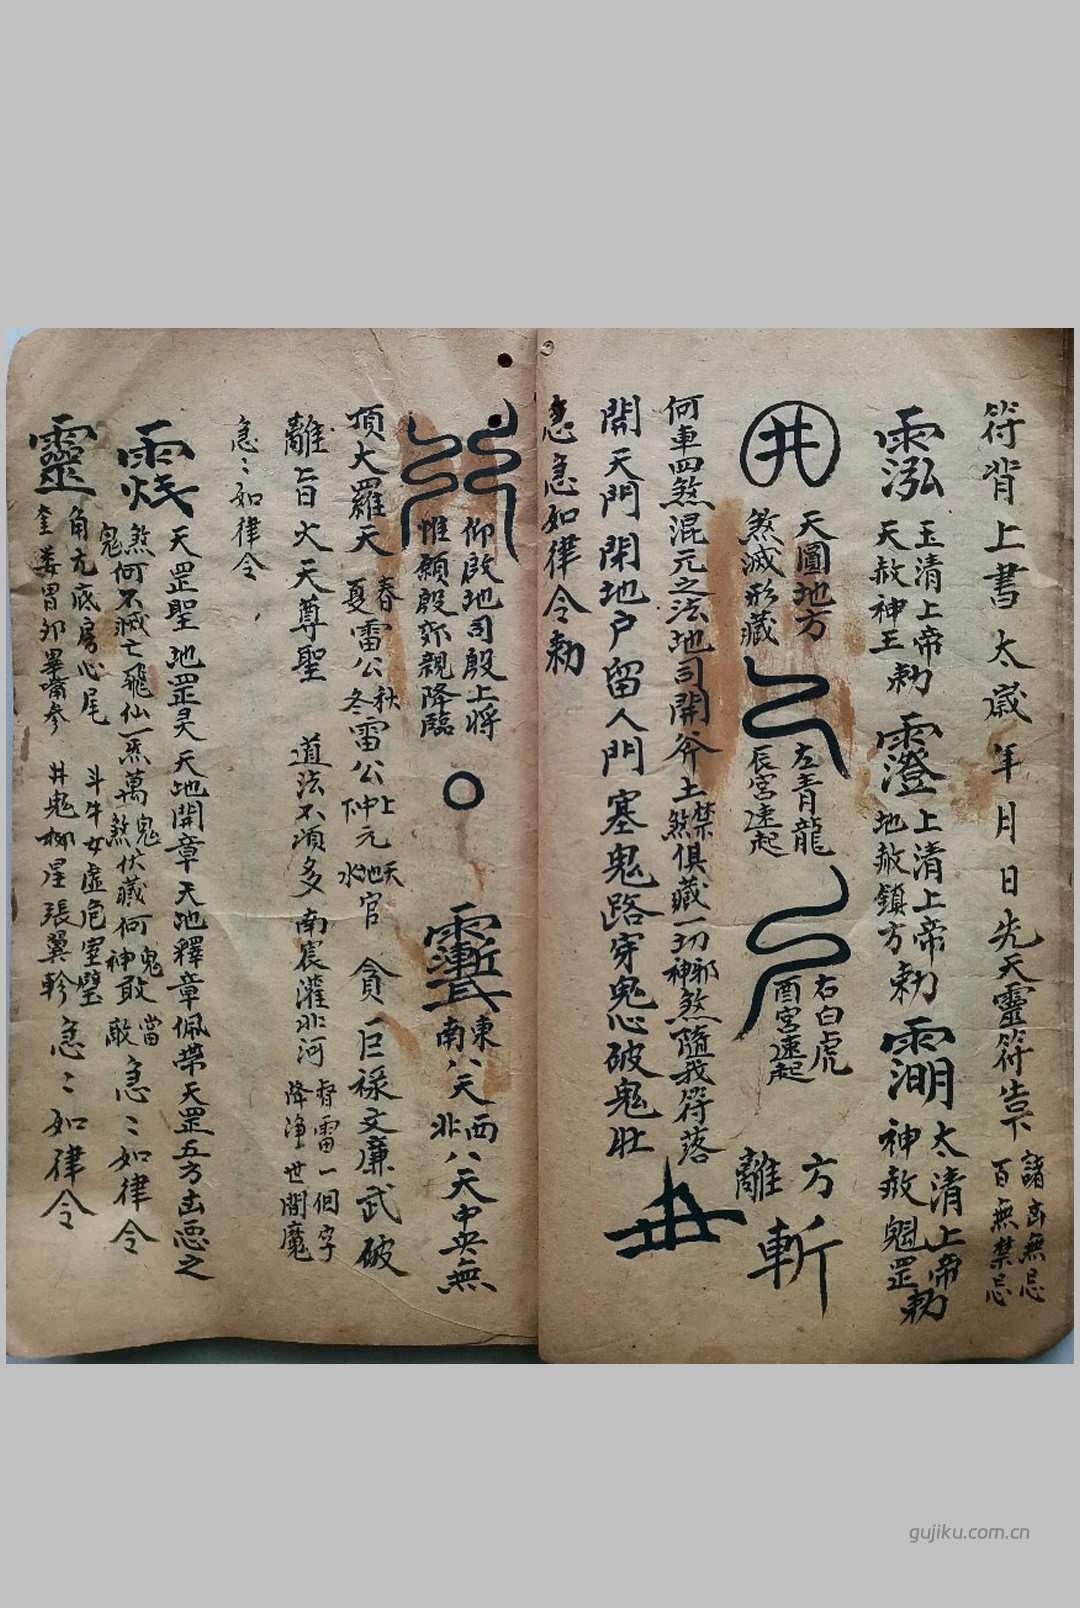 符背上書太歲年月日先天靈符告下 諸凶無忌 百無禁忌
玉清上帝 天赦神王勅
上清上帝 地赦鎮方勅
太清上帝 神赦魁罡勅
井 天圓地方 煞滅形藏
左青龍 辰宮速起
右白虎 酉宮速起
方 離 斬
何車四煞混元之法地司開斧土禁煞俱藏一切邪神煞隨我符落
開天門閉地户留人門塞鬼路穿鬼心破鬼肚
急急如律令勅
仰啟地司殷上將 惟願殷郊親降臨
東南八天西北八天中央無
頂大羅天 春夏雷公秋冬雷公 上仲元 天地水官 貪巨祿文廉武破
離旨火天尊聖 道法不須多 南宸灌北河 雷一個字 降淨世間魔
急〻如律令
天罡聖地罡灵天地開章天地釋章佩帶天罡五方凶惡之
鬼煞何不滅亡飛仙一炁萬鬼煞伏藏何鬼神敢當敵急〻如律令
靈 角亢底房心尾 斗牛女虛危室壁
奎婁胃卯畢嘴参 井鬼柳星張翼軫 急〻如律令
gujiku.com.cn